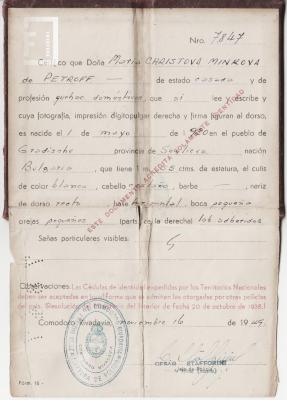 Nro. 7847
Certifico que Doña Maria CHRISTOVA MINKOVA
de PETROFF — de estado casada y de
profesión quehac. domésticos, que si lee y escribe y
cuya fotografía, impresión dígitopulgar derecha y firma figuran al dorso,
es nacido el 1 de mayo de 1920 en el pueblo de
Gradische provincia de Sevlievo nación
Bulgaria, que tiene 1 m. 55 ctms. de estatura, el cutis
de color blanco, cabello castaño, barba — nariz
de dorso recto base horizontal, boca pequeña
orejas pequeñas (part. de la derecha) lob. adheridos
Señas particulares visibles:
ESTE DOCUMENTO ACREDITA SOLAMENTE IDENTIDAD
Observaciones: Las Cédulas de identidad expedidas por los Territorios Nacionales
deben ser aceptadas en igual forma que se admiten las otorgadas por otras policías
del país. (Resolución del Ministerio del Interior de Fecha 20 de octubre de 1938.)
Comodoro Rivadavia, noviembre 16 de 1949.
CESAR STAFFORINI
Form. 16